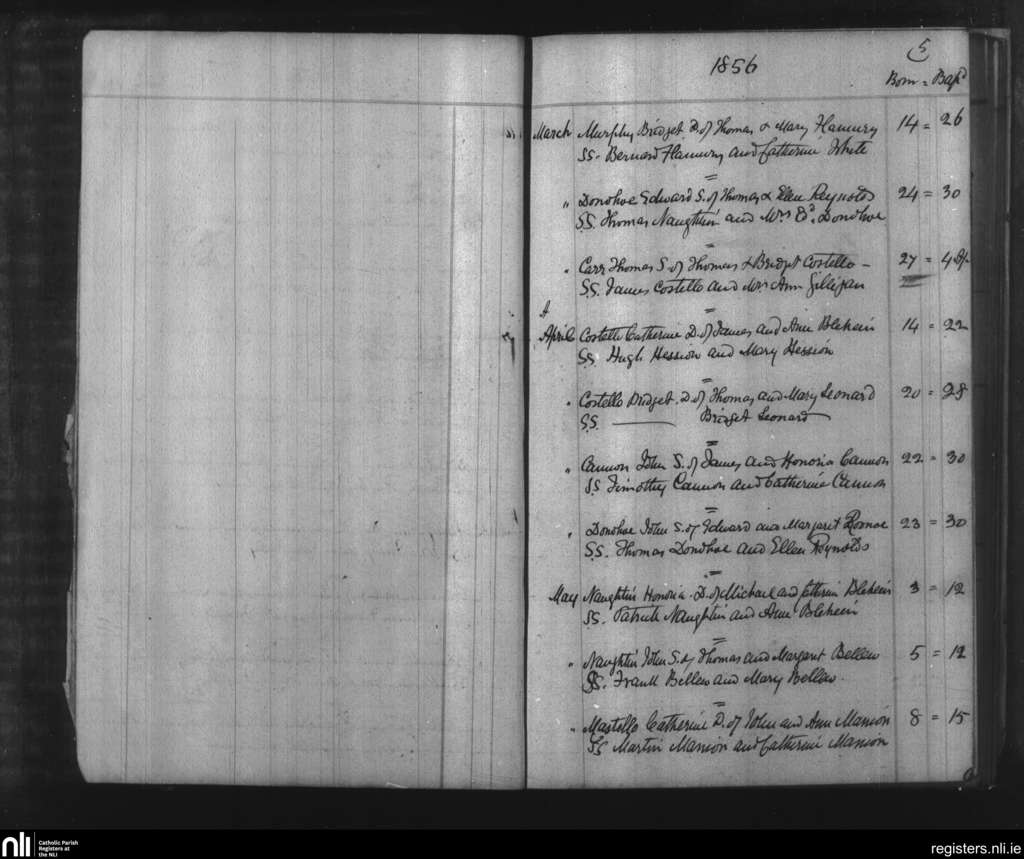 5
1856
Born = Bapd
March Murphy Bridget D. of Thomas & Mary Flannry 14 = 26
SS. Bernard Flannry and Catherine White
" Donohoe Edward S. of Thomas & Ellen Reynolds 24 = 30
S.S. Thomas Naughtin and Mrs Ed. Donohoe
" Carr Thomas S. of Thomas & Bridget Costello - 27 = 4 Ap
S.S. James Costello and Mrs Ann Gilligan
A
April Costello Catherine D. of James and Ann Blehein 14 = 22
SS. Hugh Hession and Mary Hession
" Costello Bridget. D. of Thomas and Mary Leonard 20 = 28
S.S. Bridget Leonard
" Cannon John S. of James and Honoria Cannon 22 = 30
SS Timothy Cannon and Catherine Cannon
" Donohoe John S. of Edward and Margaret 23 = 30
S.S. Thomas Donohoe and Ellen Reynolds
May Naughtin Honoria D. of Michael and Catherin Blehein 3 = 12
SS. Patrick Naughtin and Ann Blehein
" Naughtin John S. of Thomas and Margaret Bellew 5 = 12
SS. Frank Bellew and Mary Bellew.
" Mastello Catherine D. of John and Ann Manion 8 = 15
SS Martin Manion and Catherine Manion
nli Catholic Parish
Registers at
the NLI
registers.nli.ie